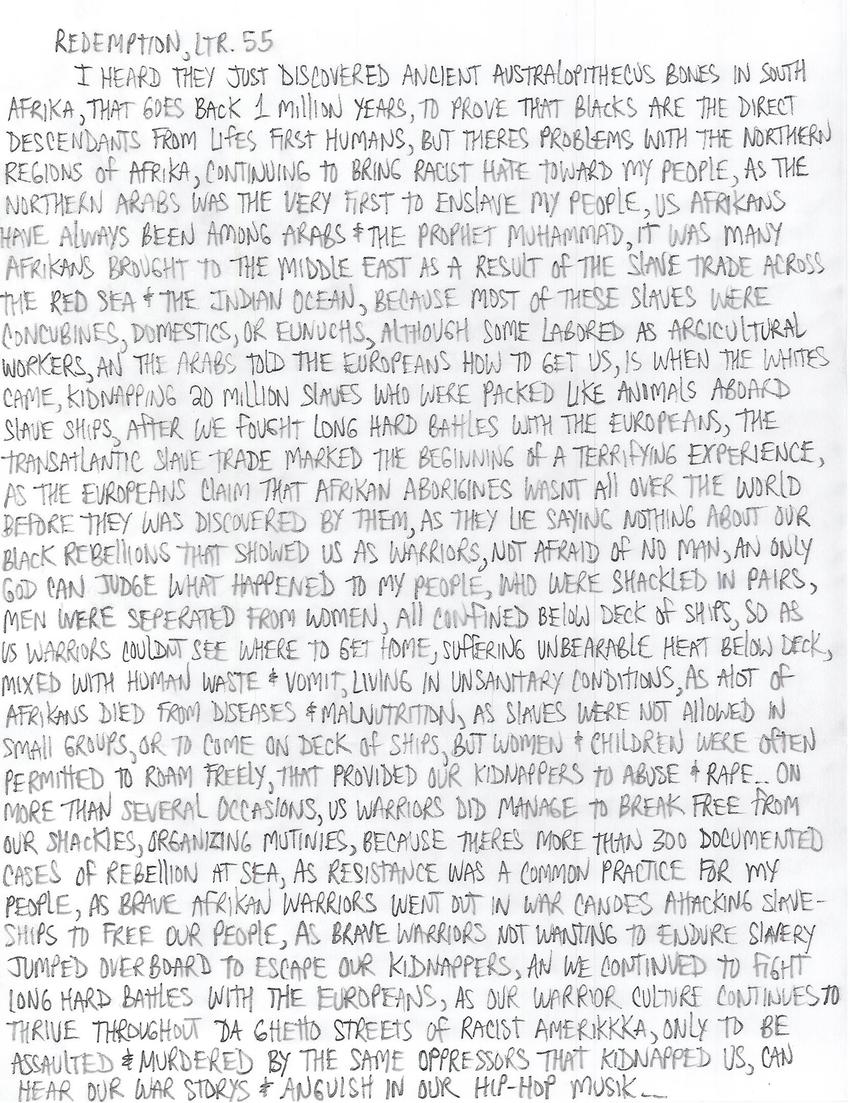 REDEMPTION, LTR. 55
I HEARD THEY JUST DISCOVERED ANCIENT AUSTRALOPITHECUS BONES IN SOUTH
AFRIKA, THAT GOES BACK 1 MILLION YEARS, TO PROVE THAT BLACKS ARE THE DIRECT
DESCENDANTS FROM LIFES FIRST HUMANS, BUT THERES PROBLEMS WITH THE NORTHERN
REGIONS OF AFRIKA, CONTINUING TO BRING RACIST HATE TOWARD MY PEOPLE, AS THE
NORTHERN ARABS WAS THE VERY FIRST TO ENSLAVE MY PEOPLE, US AFRIKANS
HAVE ALWAYS BEEN AMONG ARABS & THE PROPHET MUHAMMAD, IT WAS MANY
AFRIKANS BROUGHT TO THE MIDDLE EAST AS A RESULT OF THE SLAVE TRADE ACROSS
THE RED SEA & THE INDIAN OCEAN, BECAUSE MOST OF THESE SLAVES WERE
CONCUBINES, DOMESTICS, OR EUNUCHS, ALTHOUGH SOME LABORED AS ARGICULTURAL
WORKERS, AN THE ARABS TOLD THE EUROPEANS HOW TO GET US, IS WHEN THE WHITES
CAME, KIDNAPPING 20 MILLION SLAVES WHO WERE PACKED LIKE ANIMALS ABOARD
SLAVE SHIPS, AFTER WE FOUGHT LONG HARD BATTLES WITH THE EUROPEANS, THE
TRANSATLANTIC SLAVE TRADE MARKED THE BEGINNING OF A TERRIFYING EXPERIENCE,
AS THE EUROPEANS CLAIM THAT AFRIKAN ABORIGINES WASNT ALL OVER THE WORLD
BEFORE THEY WAS DISCOVERED BY THEM, AS THEY LIE SAYING NOTHING ABOUT OUR
BLACK REBELLIONS THAT SHOWED US AS WARRIORS, NOT AFRAID OF NO MAN, AN ONLY
GOD CAN JUDGE WHAT HAPPENED TO MY PEOPLE, WHO WERE SHACKLED IN PAIRS,
MEN WERE SEPERATED FROM WOMEN, ALL CONFINED BELOW DECK OF SHIPS, SO AS
US WARRIORS COULDNT SEE WHERE TO GET HOME, SUFFERING UNBEARABLE HEAT BELOW DECK,
MIXED WITH HUMAN WASTE & VOMIT, LIVING IN UNSANITARY CONDITIONS, AS ALOT OF
AFRIKANS DIED FROM DISEASES & MALNUTRITION, AS SLAVES WERE NOT ALLOWED IN
SMALL GROUPS, OR TO COME ON DECK OF SHIPS, BUT WOMEN & CHILDREN WERE OFTEN
PERMITTED TO ROAM FREELY, THAT PROVIDED OUR KIDNAPPERS TO ABUSE & RAPE.. ON
MORE THAN SEVERAL OCCASIONS, US WARRIORS DID MANAGE TO BREAK FREE FROM
OUR SHACKLES, ORGANIZING MUTINIES, BECAUSE THERES MORE THAN 300 DOCUMENTED
CASES OF REBELLION AT SEA, AS RESISTANCE WAS A COMMON PRACTICE FOR MY
PEOPLE, AS BRAVE AFRIKAN WARRIORS WENT OUT IN WAR CANOES ATTACKING SLAVE-
SHIPS TO FREE OUR PEOPLE, AS BRAVE WARRIORS NOT WANTING TO ENDURE SLAVERY
JUMPED OVERBOARD TO ESCAPE OUR KIDNAPPERS, AN WE CONTINUED TO FIGHT
LONG HARD BATTLES WITH THE EUROPEANS, AS OUR WARRIOR CULTURE CONTINUES TO
THRIVE THROUGHOUT DA GHETTO STREETS OF RACIST AMERIKKKA, ONLY TO BE
ASSAULTED & MURDERED BY THE SAME OPPRESSORS THAT KIDNAPPED US, CAN
HEAR OUR WAR STORYS & ANGUISH IN OUR HIP-HOP MUSIK...